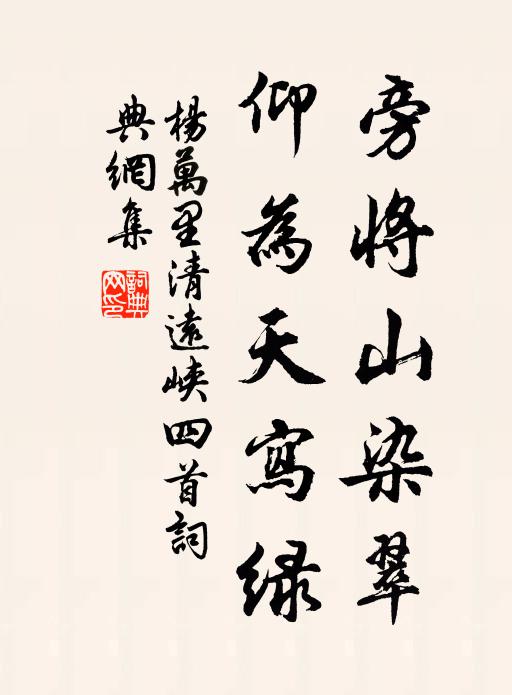 旁將山染翠
仰為天寫緑
楊萬里清遠峽四首詞
典網集
詞典
网印